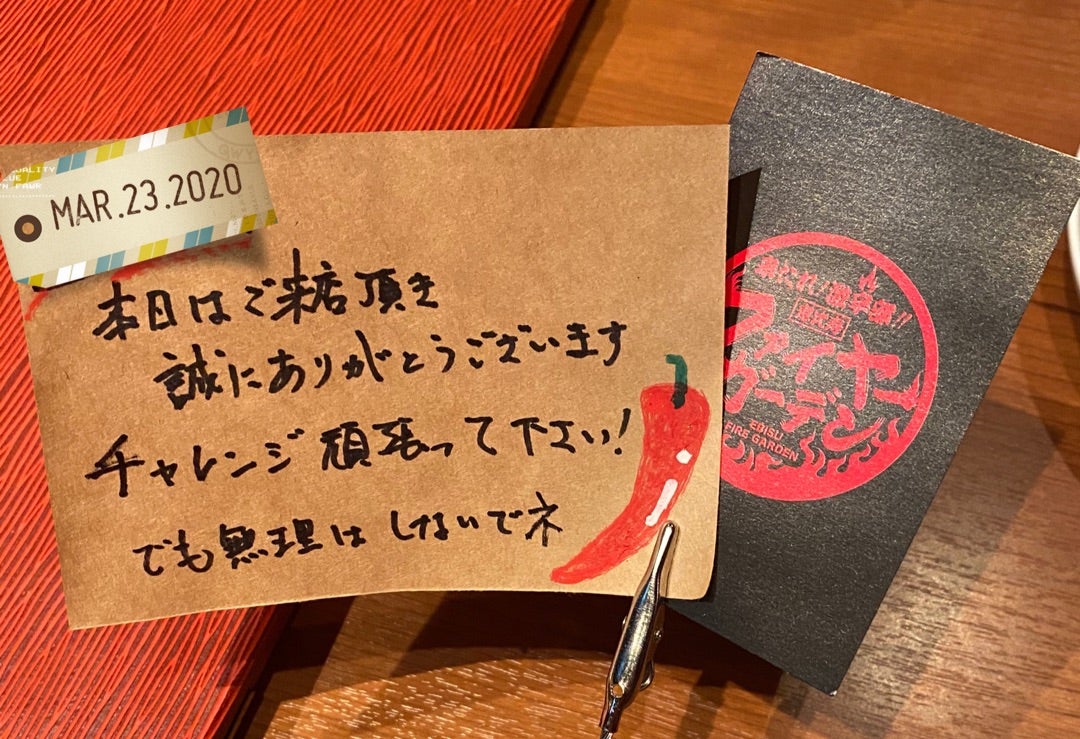 QUALITY
MAR.23.2020
本日はご来店頂き
誠にありがとうございます
チャレンジ頑張って下さい!
でも無理はしないでネ
ファイヤー
ガーデン
EBISU
FIRE GARDEN